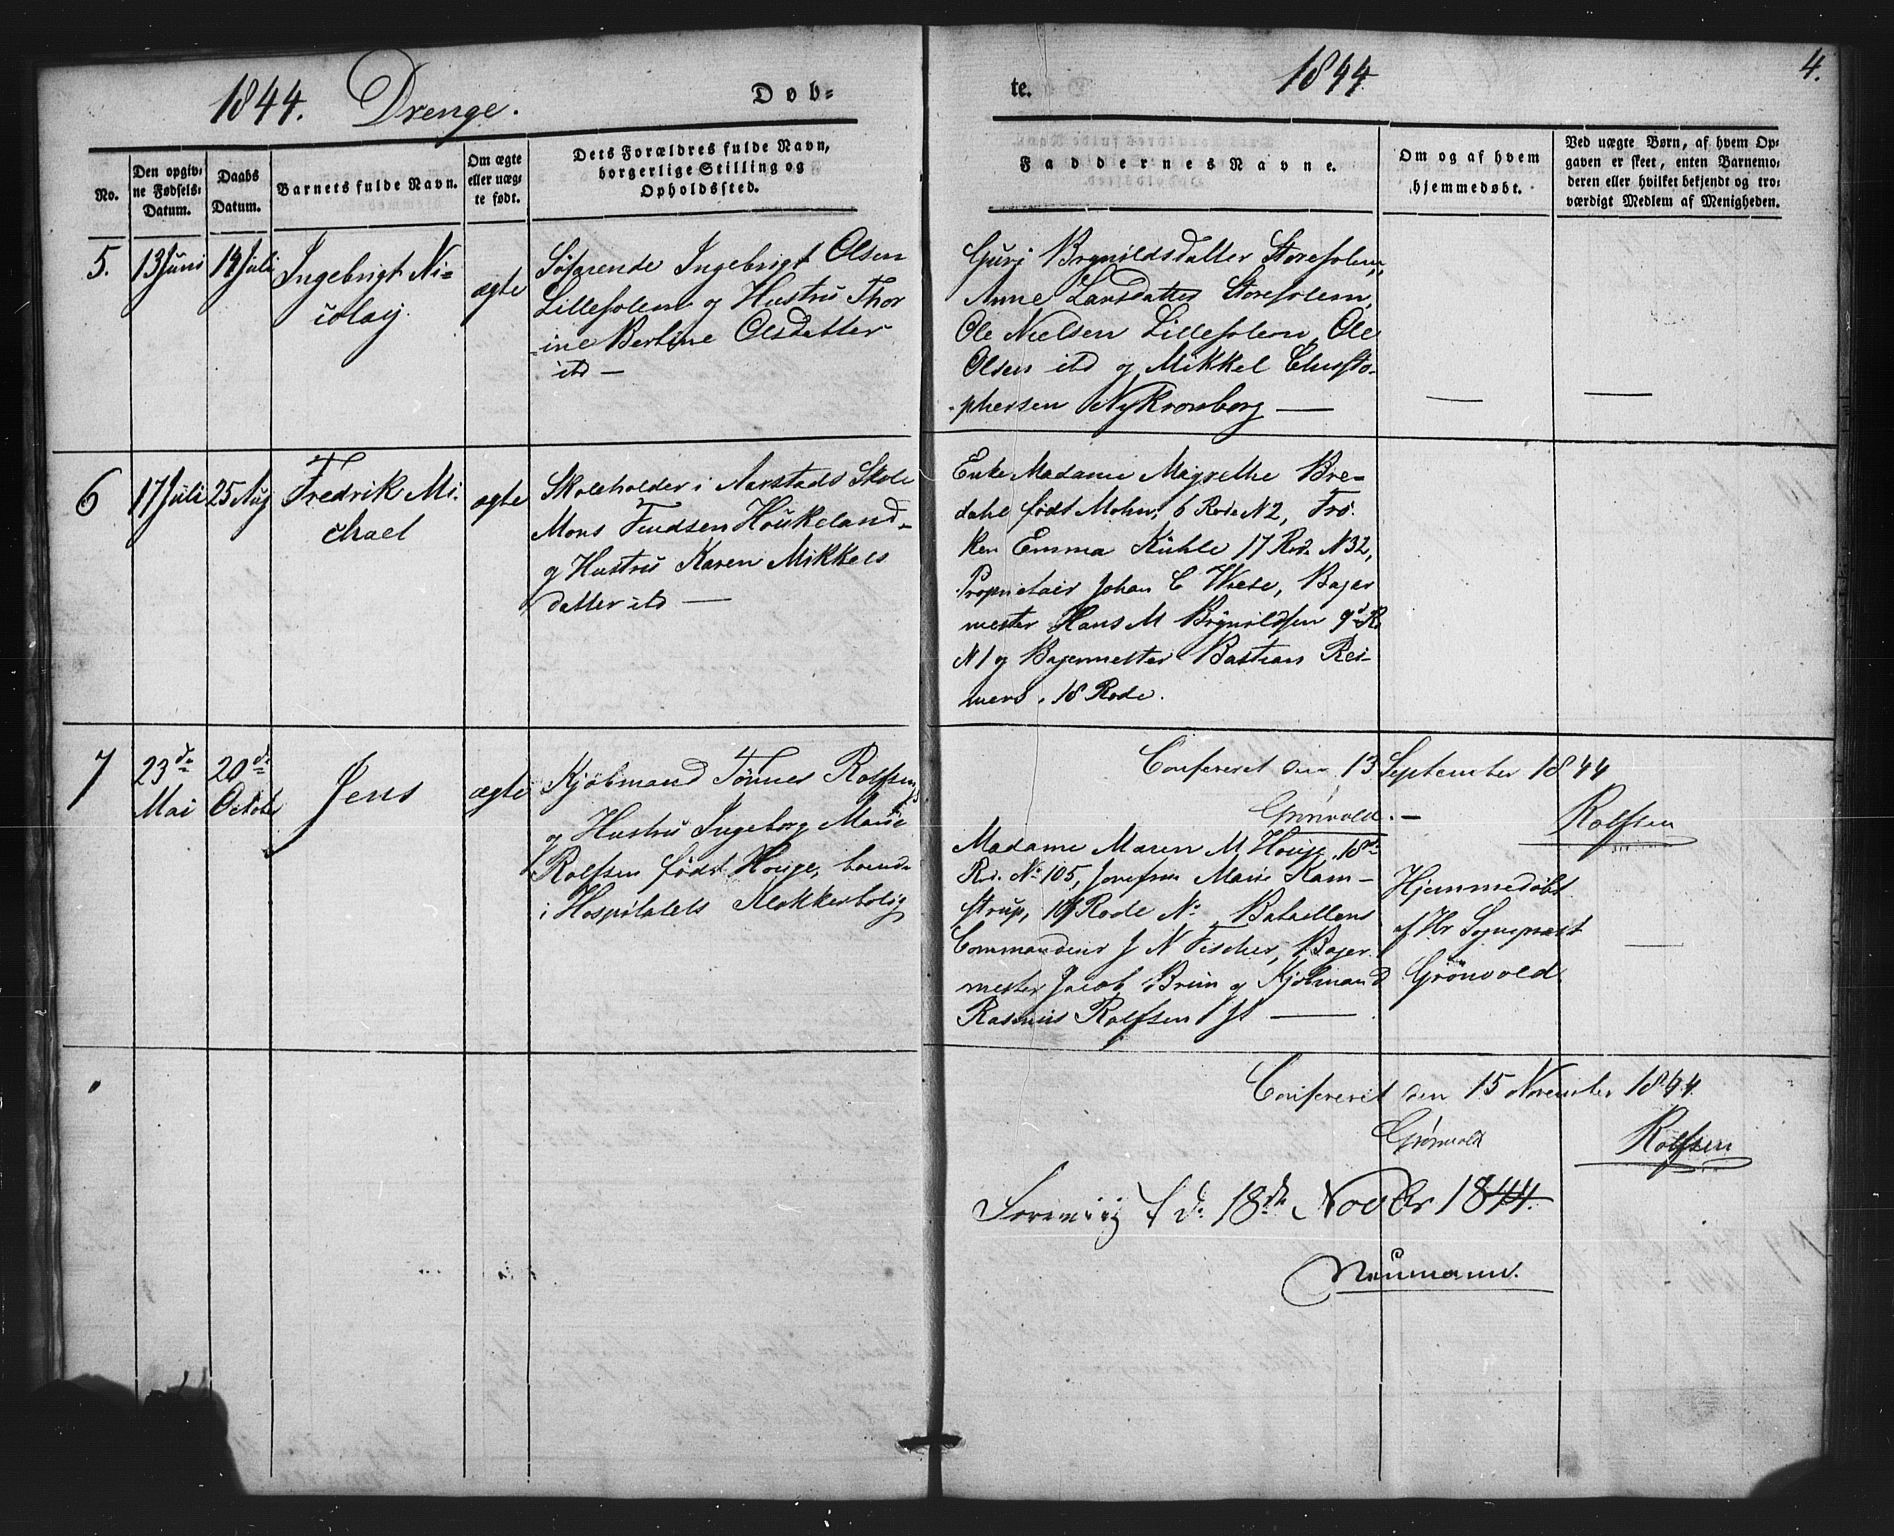 1844. Drenge. Døb-
te. 1844 4.
No.
Den opgiv-
ne Fødsels-
Datum.
Daabs
Datum.
Barnets fulde Navn.
Om ægte
eller uæg-
te født.
Dets Forældres fulde Navn,
borgerlige Stilling og
Opholdssted.
Faddernes Navne.
Om og af hvem
hjemmedøbt.
Ved uægte Børn, af hvem Op-
gaven er skeet, enten Barnemo-
deren eller hvilket bekjendt og tro-
værdigt Medlem af Menigheden.
5. 13 Juni 14 Juli
Ingebrigt Ni-
colay
ægte
Søfarende Ingebrigt Olsen
Lillesolem og Hustru Thor
ine Bertine Olsdatter
itd —
Guri Brynildsdatter Storesolem,
Anne Larsdatter Storesolem,
Ole Nielsen Lillesolem, Ole
Olsen itd og Mikkel Christo-
phersen Nykronborg —
6 17 Juli 25 Aug
Fredrik Mi-
chael
ægte
Skoleholder i Aarstads Skole
Mons Knudsen Houkeland
og Hustru Karen Mikkels
datter itd —
Enke Madame Magrethe Bre-
dahl født Mohn, 6 Rode N 2, Frø-
ken Emma Kühle 17 Rode N 32,
Proprietair Johan C Wiese, Bager
mester Hans M Brynildsen 9de Ro
N 1 og Bagermester Bastian Rei-
mers, 18 Rode.
Confereret den 13 September 1844
Grønvold. — Rolfsen
7 23de
Mai
20de
October
Jens
ægte
Kjøbmand Tønnes Rolfsen
og Hustru Ingeborg Marie
Rolfsen født Houge, boende
i Hospitalets Klokkerbolig
Madame Maren M Houge, 18de
Rd. No 105, Jomfrue Marie Kam-
strup, 16 Rode No Bataillons
Commandeur J N Fischer, Bager
mester Jacob Brun og Kjøbmand
Rasmus Rolfsen —
Hjemmedøbt
af Hr Sognepræst
Grönvold
Confereret den 15 November 1844.
Grønvold Rolfsen
d. 18de Novbr 1844.
Neumann.